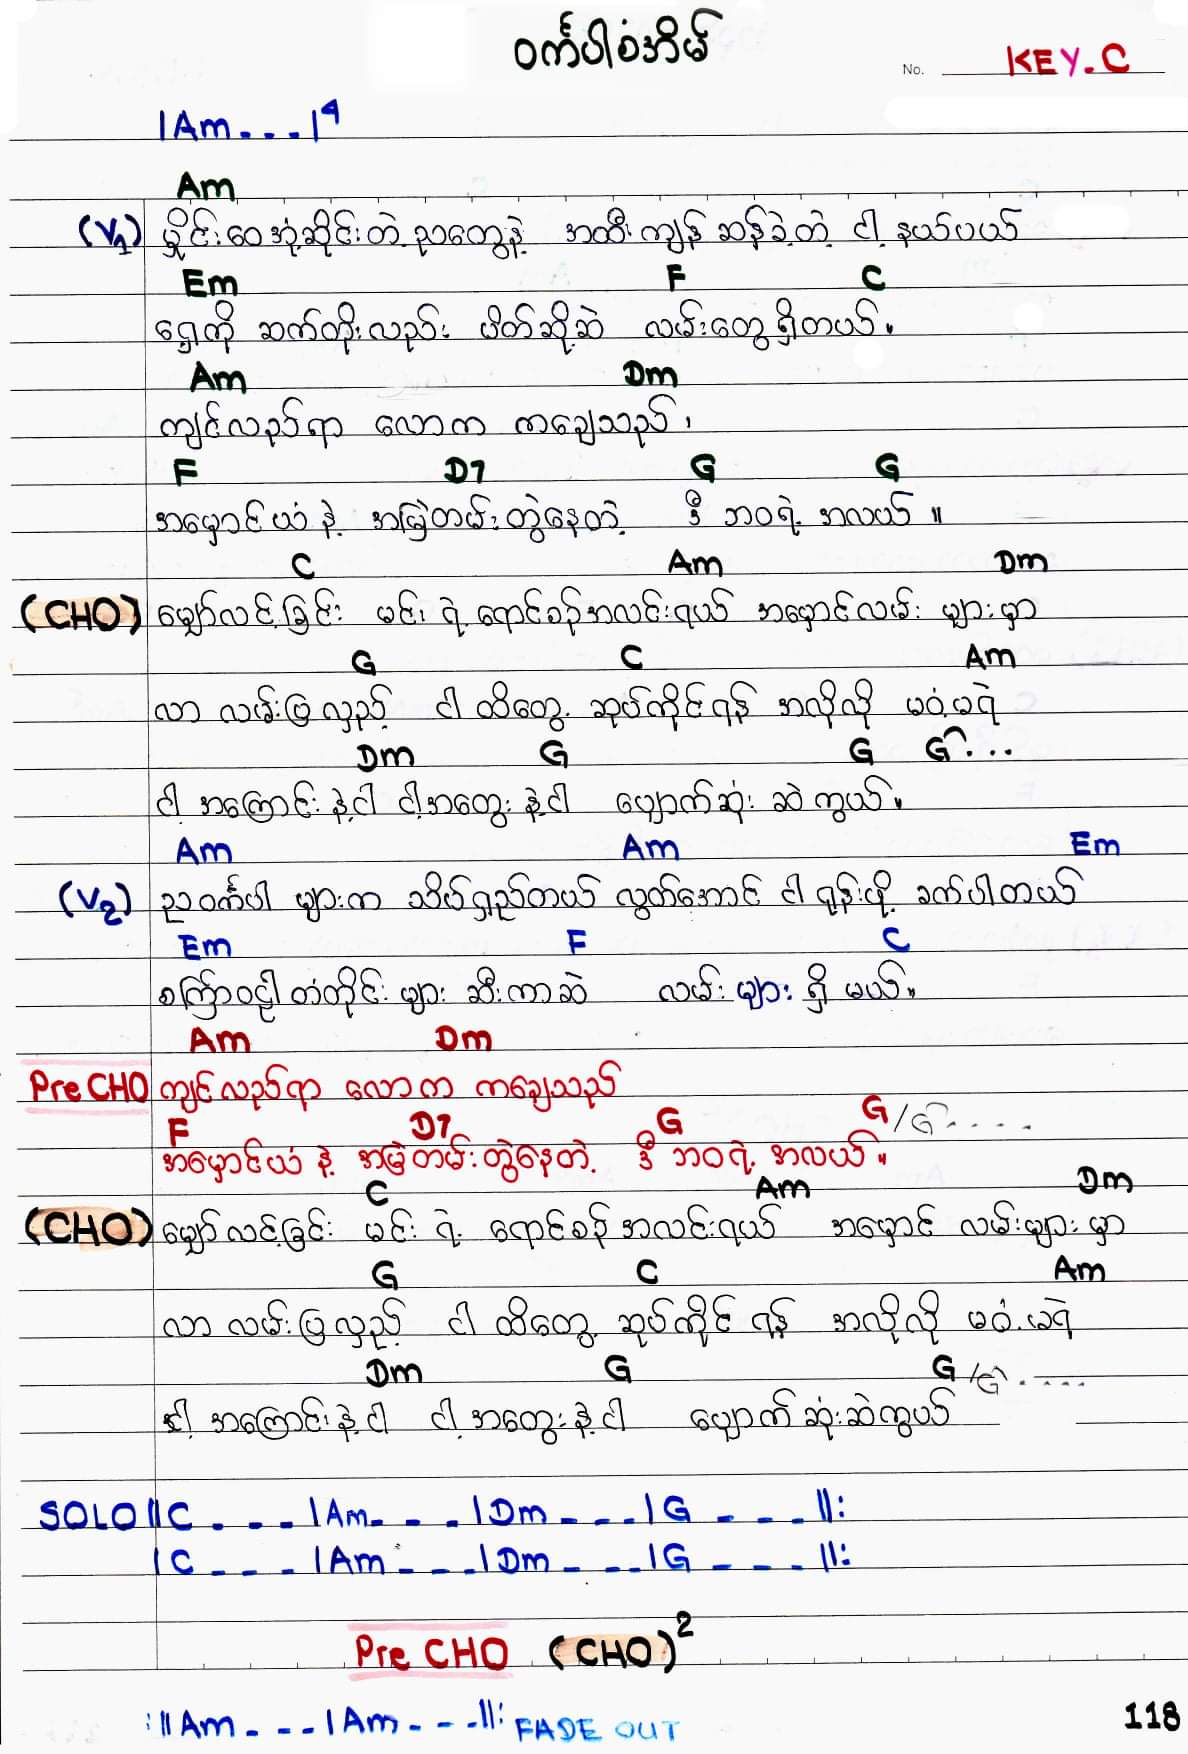 ဝင်္ကပါစံအိမ်
No. KEY.C
|Am - - - |⁴
Am
(V1) မှိုင်းဝေအုံ့ဆိုင်းတဲ့ညတွေနဲ့ အထီးကျန်ဆန်ခဲ့တဲ့ ငါ့နယ်ပယ်
Em F C
ရှေ့ကို ဆက်တိုးလည်း ပိတ်ဆို့ဆဲ လမ်းတွေရှိတယ်။
Am Dm
ကျင်လည်ရာ လောက ကချေသည်၊
F D7 G G
အမှောင်ယံနဲ့ အမြဲတမ်းတွဲနေတဲ့ ဒီ ဘဝရဲ့ အလယ်။
C Am Dm
(CHO) မျှော်လင့်ခြင်း မင်းရဲ့ ရောင်စဉ်အလင်းရယ် အမှောင်လမ်း များမှာ
G C Am
လာ လမ်းပြလှည့် ငါ ထိတွေ့ ဆုပ်ကိုင်ရန် အလိုလို မဝံ့မရဲ
Dm G G G - - -
ငါ့ အကြောင်းနဲ့ငါ ငါ့အတွေးနဲ့ငါ ပျောက်ဆုံး ဆဲကွယ်။
Am Am Em
(V2) ညဝင်္ကပါ များက သိပ်ရှည်တယ် လွတ်အောင် ငါ ရုန်းဖို့ ခက်ပါတယ်
Em F C
စကြာဝဠာတံတိုင်းများ ဆီးကာဆဲ လမ်းများ ရှိမယ်။
Am Dm
Pre CHO ကျင်လည်ရာ လောက ကချေသည်
F D7 G G/G - - - -
အမှောင်ယံနဲ့ အမြဲတမ်းတွဲနေတဲ့ ဒီ ဘဝရဲ့ အလယ်။
C Am Dm
(CHO) မျှော်လင့်ခြင်း မင်းရဲ့ ရောင်စဉ်အလင်းရယ် အမှောင် လမ်းများမှာ
G C Am
လာ လမ်းပြလှည့် ငါ ထိတွေ့ ဆုပ်ကိုင်ရန် အလိုလို မဝံ့မရဲ
Dm G G/G - - - -
ငါ့ အကြောင်းနဲ့ငါ ငါ့အတွေးနဲ့ငါ ပျောက်ဆုံးဆဲကွယ်
SOLO ||C - - - |Am - - - |Dm - - - |G - - - ||:
|C - - - |Am - - - |Dm - - - |G - - - ||:
Pre CHO (CHO)²
:||Am - - - |Am - - - ||: FADE OUT
118